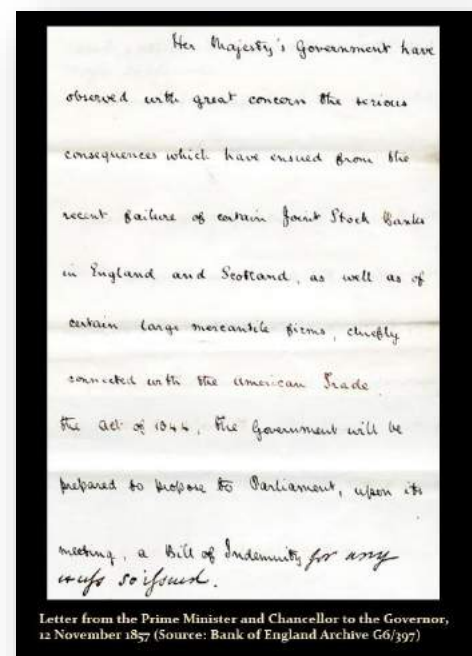 Her Majesty's Government have
observed with great concern the serious
consequences which have ensued from the
recent failure of certain Joint Stock Banks
in England and Scotland, as well as of
certain large mercantile firms, chiefly
connected with the American Trade.
the Act of 1844, the Government will be
prepared to propose to Parliament, upon its
meeting, a Bill of Indemnity for any
so issued.
Letter from the Prime Minister and Chancellor to the Governor,
12 November 1857 (Source: Bank of England Archive G6/397)